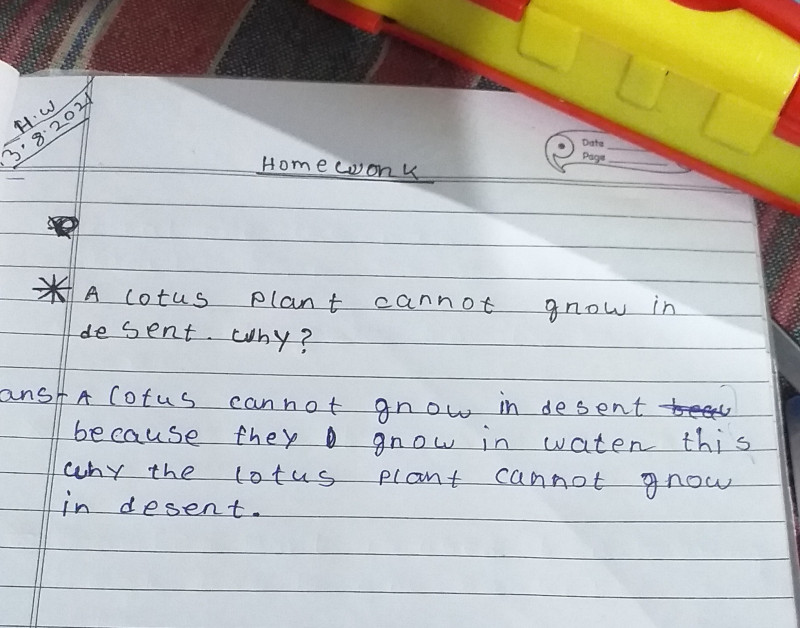 H.W
3.8.2021
Date
Page
Homework
* A lotus plant cannot grow in
desert. why?
ans- A lotus cannot grow in desert
because they grow in water this
why the lotus plant cannot grow
in desert.